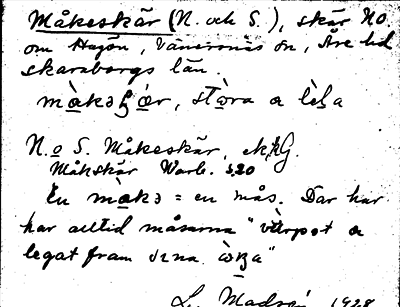 Måkeskär (N. och S.), skär NO
om Hagön, Vänersnäs sn, Åse hd
skaraborgs län.
stæ̀ra o
N. o S. Måkeskär, ekkG.
Måkskär Warb. 320
En måkə = en mås. Där har
har alltid måsarna "vàrpət o
legat fram
L. Madsén 1928